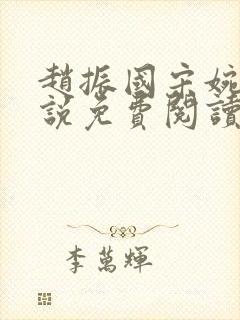 趙振國宋婉
說免費閱讀
李萬輝